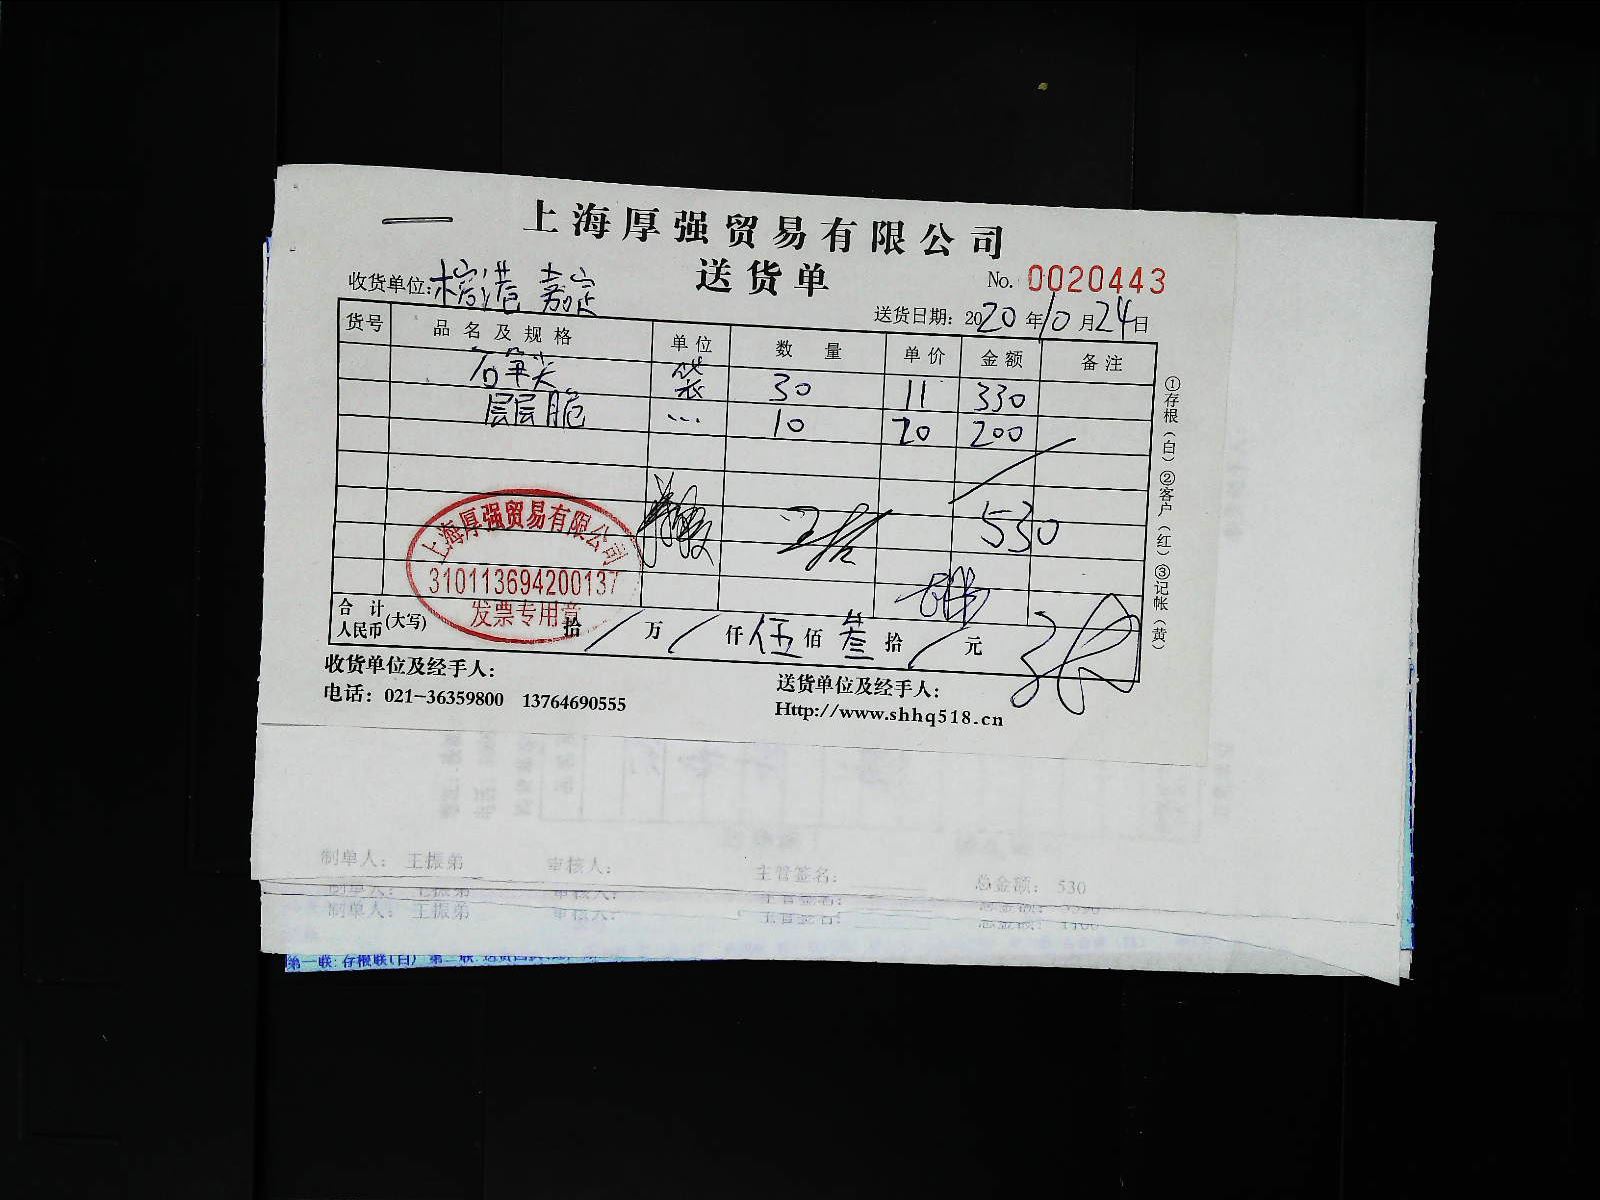 上海厚强贸易有限公司
送货单
No. 0020443
收货单位:榕港 嘉定
送货日期: 2020年10月24日
货号 品名及规格 单位 数量 单价 金额 备注
石笋尖 袋 30 11 330
层层脆 … 10 20 200
530
上海厚强贸易有限公司
310113694200137
发票专用章
合计人民币(大写) 拾 / 万 / 仟 伍 佰 叁 拾 / 元
收货单位及经手人:
送货单位及经手人:
电话: 021-36359800 13764690555
Http://www.shhq518.cn
①存根(白)②客户(红)③记帐(黄)
制单人: 王振弟 审核人: 主管签名: 总金额: 530
制单人: 王振弟 审核人: 主管签名: 总金额:
制单人: 王振弟 审核人: 主管签名: 总金额: 1100
第一联:存根联(白) 第二联: